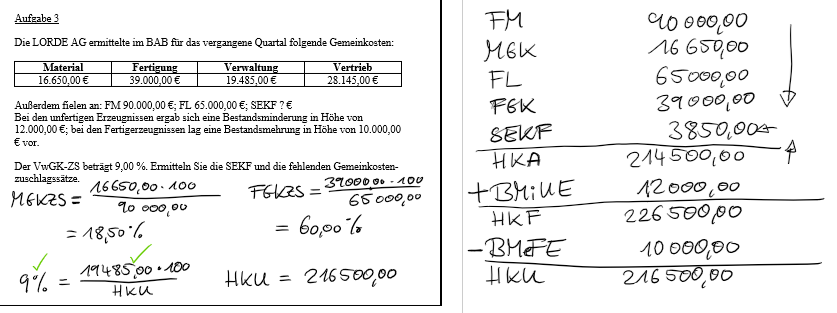 Aufgabe 3
Die LORDE AG ermittelte im BAB für das vergangene Quartal folgende Gemeinkosten:
Material Fertigung Verwaltung Vertrieb
16.650,00 € 39.000,00 € 19.485,00 € 28.145,00 €
Außerdem fielen an: FM 90.000,00 €; FL 65.000,00 €; SEKF ? €
Bei den unfertigen Erzeugnissen ergab sich eine Bestandsminderung in Höhe von
12.000,00 €; bei den Fertigerzeugnissen lag eine Bestandsmehrung in Höhe von 10.000,00
€ vor.
Der VwGK-ZS beträgt 9,00 %. Ermitteln Sie die SEKF und die fehlenden Gemeinkosten-
zuschlagssätze.
MGKZS = 16650,00 · 100 / 90 000,00
= 18,50 %
FGKZS = 39000,00 · 100 / 65 000,00
= 60,00 %
9% = 19485,00 · 100 / HKU
HKU = 216500,00
FM 90 000,00
MGK 16 650,00
FL 65 000,00
FGK 39 000,00
SEKF 3850,00
HKA 214 500,00
+ BMiUE 12 000,00
HKF 226 500,00
- BMeFE 10 000,00
HKU 216 500,00